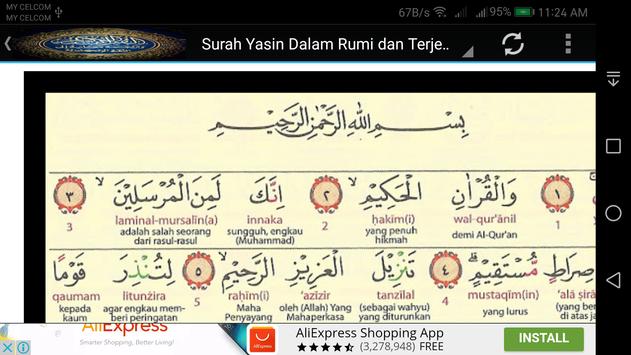 MY CELCOM
MY CELCOM
67B/s 95% 11:24 AM
Surah Yasin Dalam Rumi dan Terje..
بِسْمِ اللهِ الرَّحْمٰنِ الرَّحِيْمِ
١ وَالْقُرْاٰنِ الْحَكِيْمِ ٢ اِنَّكَ لَمِنَ الْمُرْسَلِيْنَ ٣
1 wal-qur'ānil ḥakīm(i) 2 innaka laminal-mursalīn(a) 3
demi Al-Qur'an yang penuh hikmah sungguh, engkau (Muhammad) adalah salah seorang dari rasul-rasul
صِرَاطٍ مُّسْتَقِيْمٍ ٤ تَنْزِيْلَ الْعَزِيْزِ الرَّحِيْمِ ٥ لِتُنْذِرَ قَوْمًا
'alā ṣirā mustaqīm(in) 4 tanzīlal 'azīzir raḥīm(i) 5 litunżira qaumam
yang lurus (sebagai wahyu) yang diturunkan oleh (Allah) Yang Mahaperkasa Maha Penyayang agar engkau memberi peringatan kepada kaum
AliExpress
Smarter Shopping, Better Living!
AliExpress Shopping App
(3,278,948) FREE
INSTALL